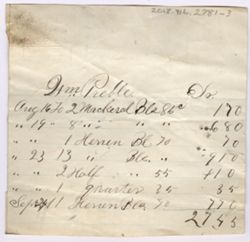 2018.914.2781-3
Wm Peeble Dr
Aug 16 To 2 Mackerel Bls 85c 1 70
" 19 " 8 " " " 6 80
" " 1 Herren Bl 70 70
" 23 13 " Bls " 9 10
" " 2 Half " 55 1 10
" " 1 quarter 35 35
Sept 11 Herren Bls 70 7 70
27 45